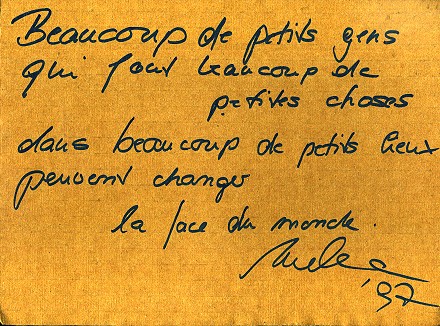 Beaucoup de petits gens
qui font beaucoup de
petites choses
dans beaucoup de petits lieux
peuvent changer
la face du monde.
'97